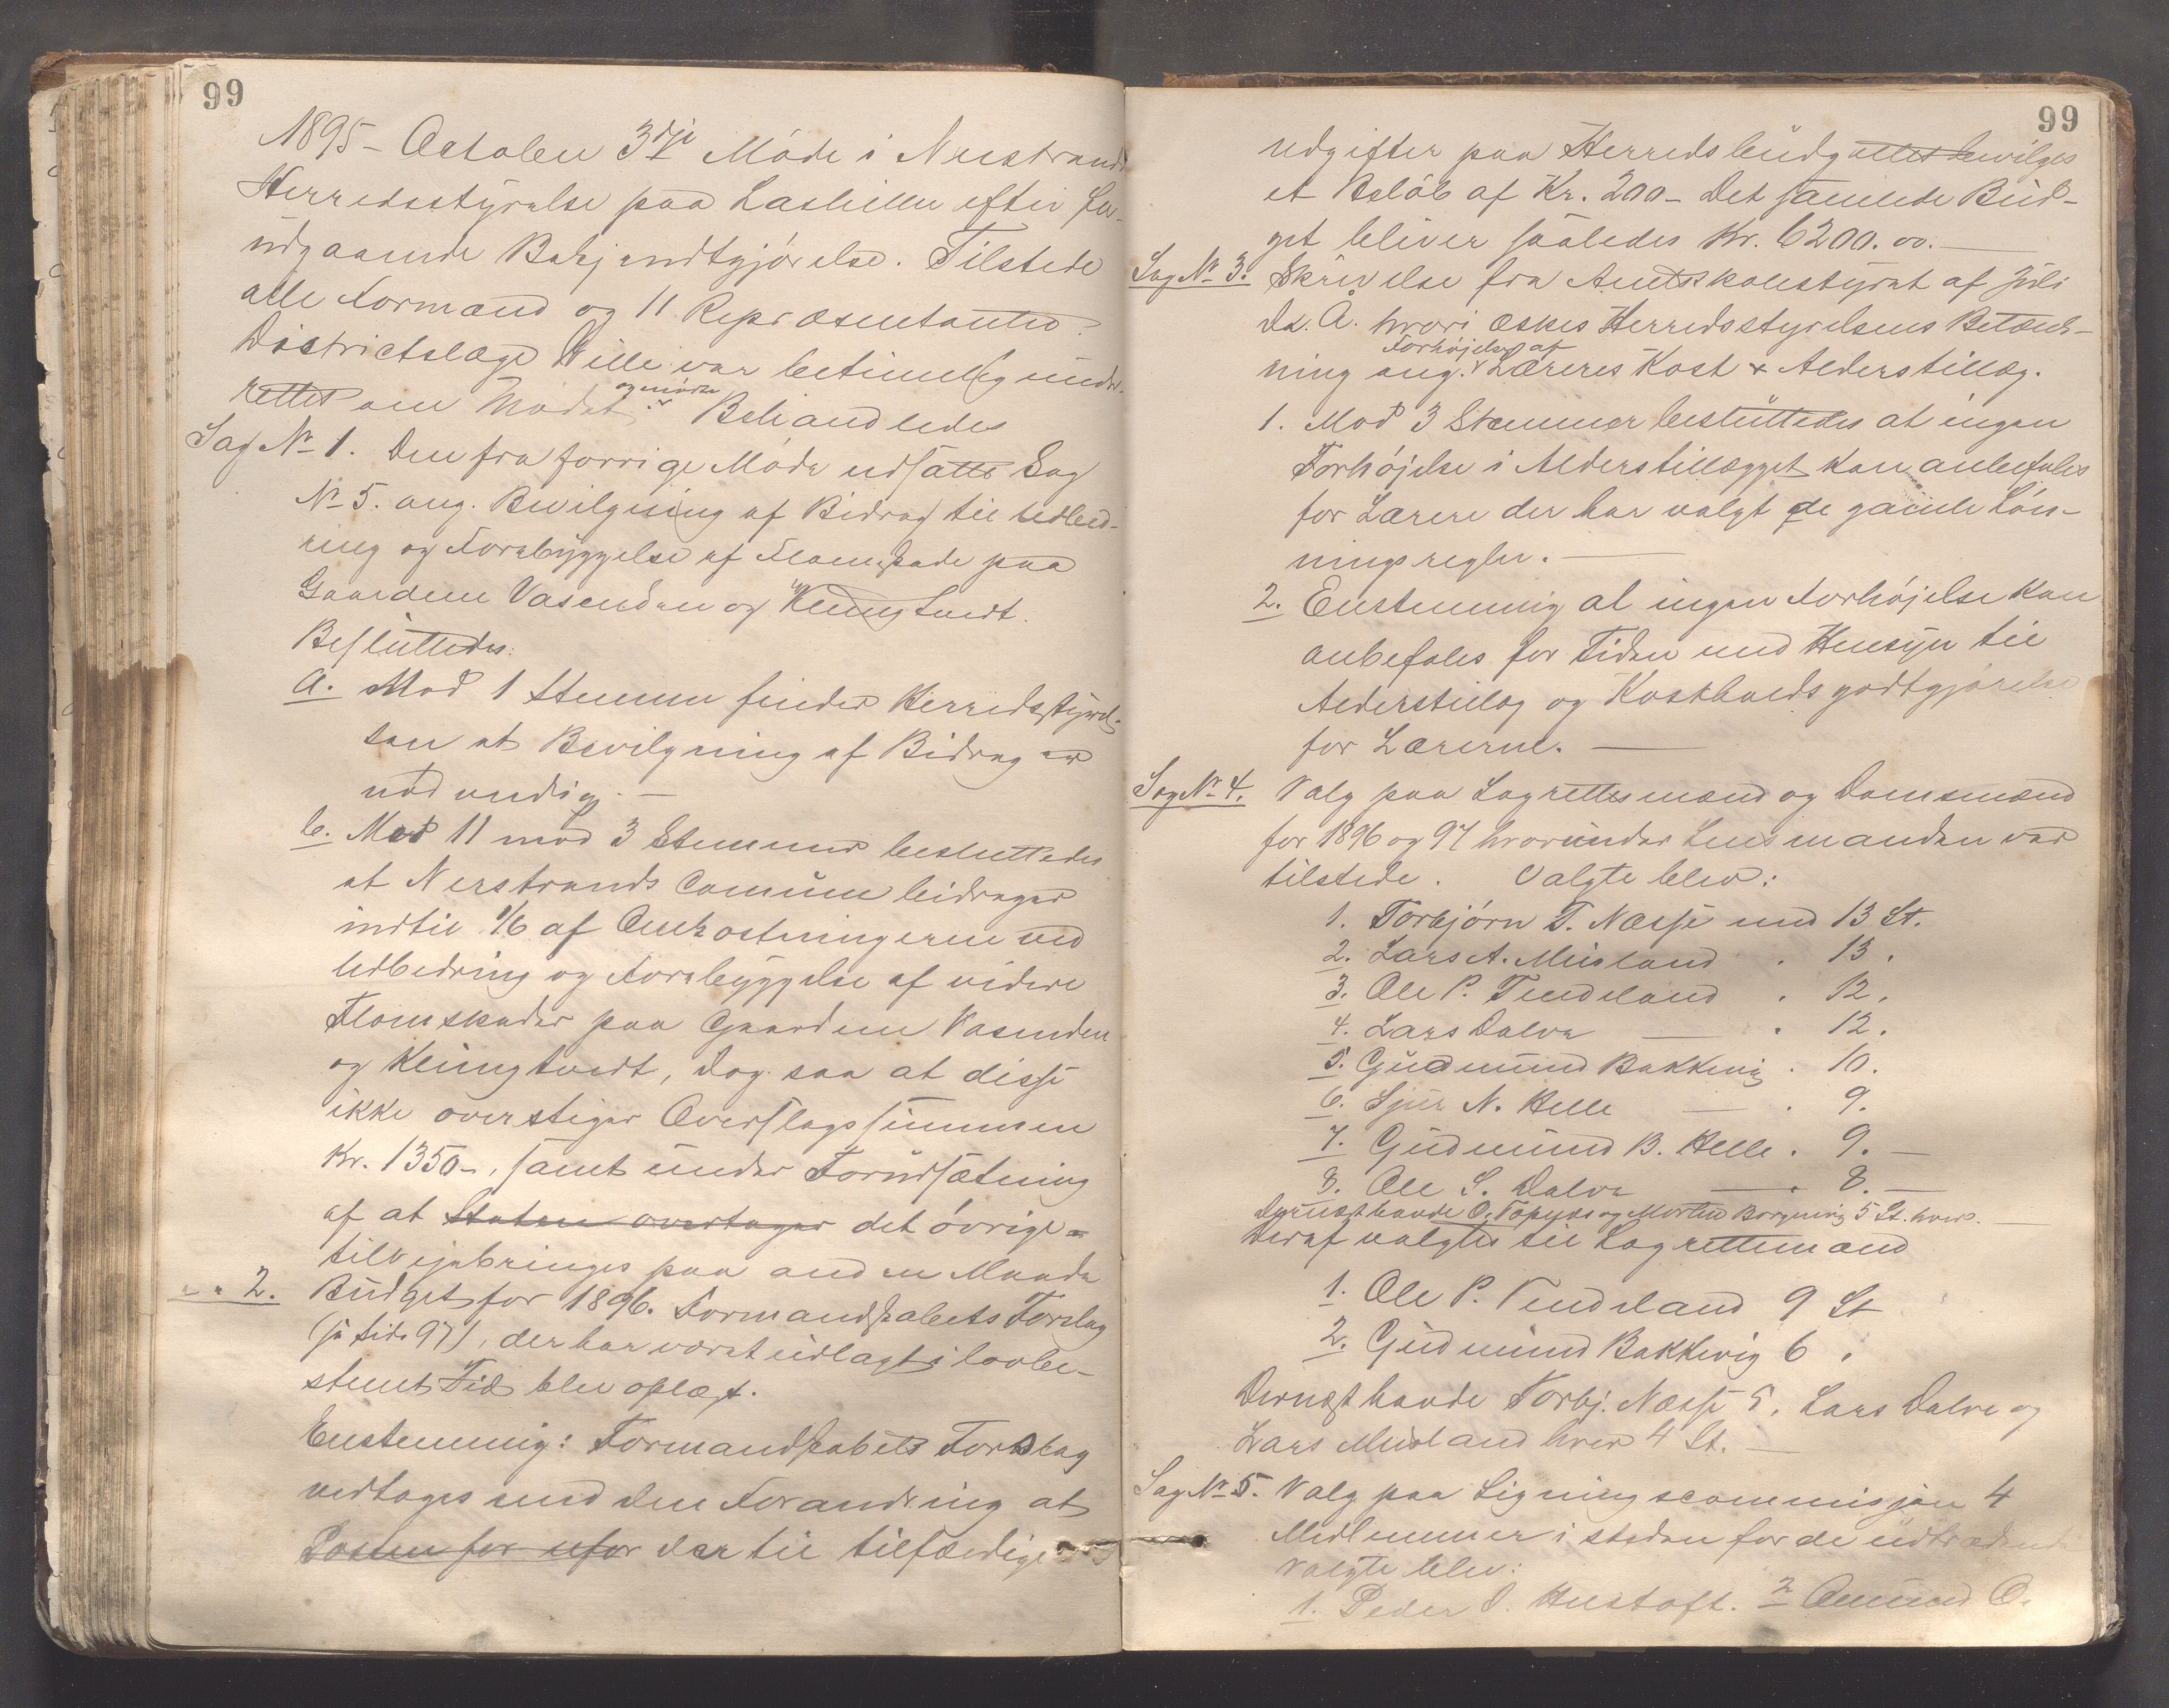 99
1895 - October 3dje Møde i Nerstrands
Herredsstyrelse paa Lashillen efter for-
udgaaende Bekjendtgjørelse. Tilstede
alle Formænd og 11 Repræsentanter.
Districtslæge Wille var betimelig under-
rettet om Mødet og mødte. Behandledes
Sag No 1. Den fra forrige Møde udsatte Sag
No 5. ang. Bevilgning af Bidrag til Udbed-
ring og Forebyggelse af Flomskade paa
Gaardene Vasenden og Klungtvedt.
Besluttedes:
a. Mod 1 Stemme finder Herredsstyrel-
sen at Bevilgning af Bidrag er
nødvendig. —
b. Med 11 mod 3 Stemmer besluttedes
at Nerstrands Comune bidrager
indtil 1/6 af Omkostningerne ved
Udbedring og Forebyggelse af videre
Flomskader paa Gaardene Vasenden
og Klungtvedt, dog saa at disse
ikke overstiger Overslagssummen
Kr. 1350-, samt under Forudsætning
af at Staten overtager det øvrige
tilvejebringes paa anden Maade
" " 2. Budget for 1896. Formandskabets Forslag
(se side 97), der har været udlagt i lovbe-
stemt Tid blev oplæst.
Enstemmig: Formandskabets Forslag
vedtages med den Forandring at
Posten for ufor der til tilfældige
99
udgifter paa Herredsbudgettet bevilges
et Beløb af Kr. 200- Det samlede Bud-
get bliver saaledes Kr. 6200.00. —
Sag No 3. Skrivelse fra Amtsskolestyret af Juli
ds. A. hvori æskes Herredsstyrelsens Betænk-
ning ang. Forhøjelse af Læreres Kost & Alderstillæg.
1. Mod 3 Stemmer besluttedes at ingen
Forhøjelse i Alderstillægget kan anbefales
for Lærere der har valgt de gamle Løn-
ningsregler. —
2. Enstemmig at ingen Forhøjelse kan
anbefales for Tiden med Hensyn til
Alderstillæg og Kostholdsgodtgjørelse
for Lærerne. —
Sag No 4. Valg paa Lagrettesmænd og Domsmænd
for 1896 og 97 hvorunder Lensmanden var
tilstede. Valgte blev:
1. Torbjørn T. Næsse med 13 St.
2. Lars A. Meisland . 13 .
3. Ole P. Tendeland . 12.
4. Lars Dalva — . 12.
5. Gudmund Bakkevig . 10.
6. Sjur N. Helle — . 9.
7. Gudmund B. Helle . 9. —
8. Ole S. Dalva — . 8. —
Dernæst havde O. Vaage og Morten Borgenvig 5 St. hver. —
Deraf valgtes til Lagrettemænd
1. Ole P. Tendeland 9 St
2. Gudmund Bakkevig 6 .
Dernæst havde Torbj. Næsse 5, Lars Dalva og
Lars Meisland hver 4 St. —
Sag No 5. Valg paa Ligningscommisjon 4
Medlemmer i steden for de udtrædende
Valgte blev:
1. Peder O. Hustoft. 2 Omund O.